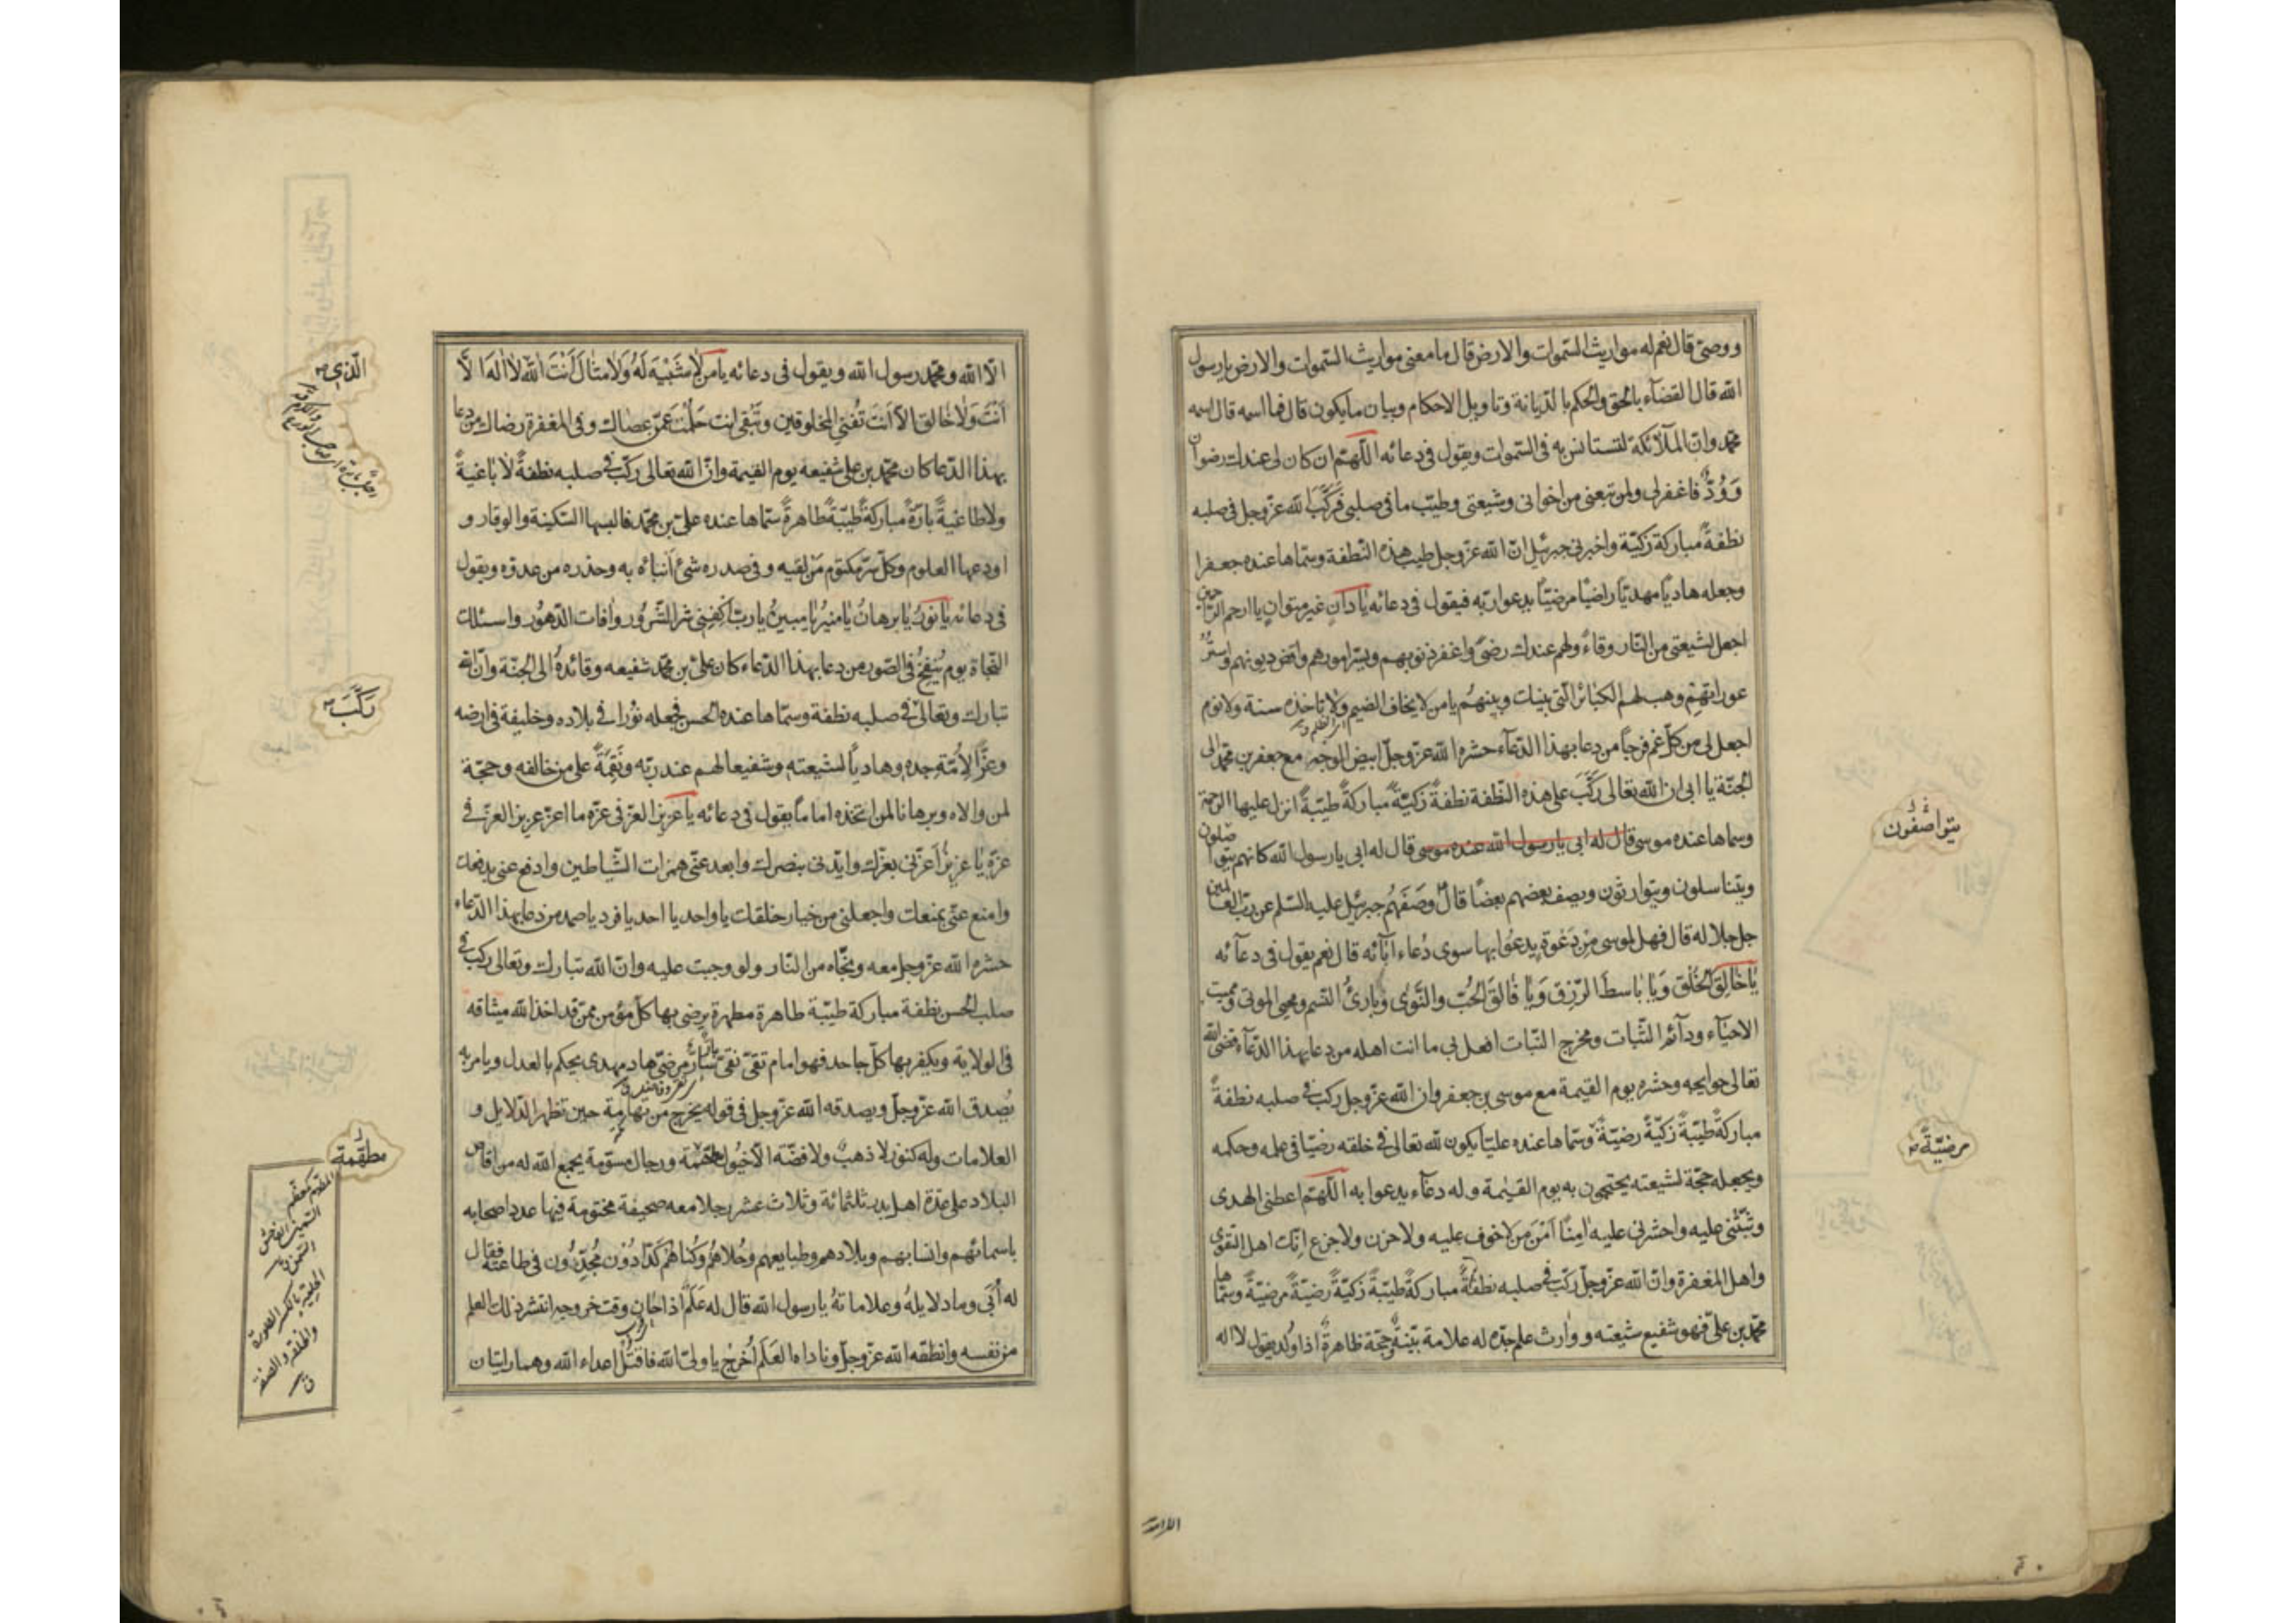 ووصى قال نعم له مواريث السموات والارض قال ما معنى مواريث السموات والارض يا رسول
الله قال القضآء بالحق والحكم بالديانة وتاويل الاحكام وبيان ما يكون قال فما اسمه قال اسمه
محمد وان الملآئكة لتستانس به فى السموات ويقول فى دعائه اللهم ان كان لى عندك رضوان
وَوُدٌّ فاغفر لى ولمن تبعنى من اخوانى وشيعتى وطيب ما فى صلبى فَرَكَّبَ الله عز وجل فى صلبه
نطفةً مباركة زكيّة واخبرنى جبرئيل ان الله عز وجل طيب هذه النطفة وسماها عنده جعفرا
وجعله هاديًا مهديّا راضيًا مرضيّا يدعوا ربّه فيقول فى دعائه يا دانٍ غير متوانٍ يا ارحم الراحمين
اجعل لشيعتى من النار وقاءً ولهم عندك رضًى واغفر ذنوبهم ويسّر امورهم واقض ديونهم واستُر
عوراتهم وهب لهم الكبائر التى بينك وبينهُم يا من لا يخاف الضيم ولا تاخذه سنة ولا نوم
اجعل لى من كل غم فرجًا من دعا بهذا الدّعآء حشره الله عز وجلّ ابيض الوجه مع جعفر بن محمد الى
الجنّة يا ابى ان الله تعالى رَكَّبَ على هذه النّطفة نطفةً زكيّةً مباركةً طيّبةً انزل عليها الرحمة
وسماها عنده موسى قال له ابى يا رسول الله عنده موسى قال له ابى يا رسول الله كانهم يتواصلون
ويتناسلون ويتوارثون ويصف بعضهم بعضًا قال وَصَفَهُم جبرئيل عليه السّلم عن ربّ العالمين
جل جلاله قال فهل لموسى مِن دَعْوةٍ يدعُوا بها سوى دُعاء ابآئه قال نعم يقول فى دعآئه
يَا خَالِقَ الخَلْقِ وَيَا بَاسطَ الرّزقِ وَيَا فَالقَ الحُبّ والنَّوٰى وَبارئُ النسم ومحيى الموتى ومميت
الاحيآء ودآئم الثّبات ومخرج النّبات افعل بى ما انت اهله من دعا بهذا الدّعآء قضى الله
تعالى حوايجه وحشره يوم القيمة مع موسى بن جعفر وان الله عز وجل ركب فى صلبه نطفةً
مباركةً طيّبةً زَكيّةً رضيّةً وسمّاها عنده عليّا يكون لله تعالى فى خلقه رضيّا فى علمه وحكمه
ويجعله حجّة لشيعته يحتجون به يوم القيٰمة وله دعآء يدعوا به اللّهم اعطنى الهدى
وثبّتنى عليه واحشرنى عليه اٰمِنًا اَمْنَ مَن لا خوف عليه ولا حزن ولا جزع انّك اهل التقوى
واهل المغفرة وانّ الله عز وجلّ ركّب فى صلبه نطفةً مباركةً طيّبةً زَكيّةً رَضيّةً مرضيّةً وسمّاها
محمّد بن علىّ فهو شفيع شيعته ووارث علم جدّه له علامة بيّنةٌ وحجّة ظاهرةٌ اذا ولد يقول لا اله
يتواصفون
مرضيّةً
الا الله ومحمّد رسول الله ويقول فى دعائه يا من لا شَبْيهَ لَهُ وَلا مثالَ اَنْتَ الله لا اله الّا
اَنْتَ وَلا خالق الّا اَنتَ تُفنى المخلوقين وتَبقى انت حَلُمْتَ عَمّن عصاك وفى المغفرة رضاك من دعا
بهذا الدّعا كان محمّد بن على شفيعه يوم القيمة وانّ الله تعالى ركّب فى صلبه نطفةً لا باغيةً
ولا طاغيةً بارّةً مباركةً طيّبةً طاهرةً سمّاها عنده علىّ بن محمّد فالبسها السّكينة والوقار و
اودعها العلوم وكلّ سرّ مكتوم مَن لقيه وفى صدره شئ انباه به وحذّره من عدوه ويقول
فى دعائه يا نورُ يا برهانُ يا منيرُ يا مبينُ يا ربّ اكفِنِى شر الشّرُور واٰفات الدّهُور واسئلك
النّجاة يوم يُنفخُ فى الصّور من دعا بهذا الدّعاء كان علىّ بن محمّد شفيعه وقائده الى الجنّة وانّ الله
تبارك وتعالى فى صلبه نطفة وسمّاها عنده الحسن فجعله نورًا فى بلاده وخليفة فى ارضه
وعزًّا لاُمّة جده وهاديًا لشيعته وشفيعا لهم عند ربّه ونَقِمَةً على من خالفه وحجّة
لمن والاه وبرهانا لمن اتخذه امامًا يقول فى دعائه يا عَزيزَ العزّ فى عزّه ما اعزّ عزيز العزّ فى
عزّه يا عزيزُ اَعزّنى بعزّك وايّدنى بنصرك وابعد عنّى همزات الشّياطين وادفع عنى بدفعك
وامنع عنّى بمنعك واجعلنى من خيار خلقك يا واحد يا احد يا فرد يا صمد من دعا بهذا الدّعاء
حشره الله عزّ وجل معه ونجّاه من النّار ولو وجبت عليه وانّ الله تبارك وتعالى ركب فى
صلب الحسن نطفة مباركة طيّبة طاهرة مطهرة يرضى بها كلّ مؤمن ممّن قد اخذ الله ميثاقه
فى الولاية ويكفر بها كلّ جاحد فهو امام تقىّ نقىّ سارّ مرضىّ هاد مهدى يحكم بالعدل ويامر به
يُصدق الله عزّ وجلّ ويصدقه الله عزّ وجل فى قوله يخرج من تهامة حين تظهر الدّلايل و
العلامات وله كنوز لا ذهبٌ ولا فضّة الّا خيُول مطهّمة ورجال مسوّمة يجمع الله له من اقاصى
البلاد على عدّة اهل بدر ثلثمائة وثلاث عشر رجلا معه صحيفة مختومة فيها عدد اصحابه
باسمائهم وانسابهم وبلادهم وطبايعهم وحُلاهُم وكُناهُم كدّادُون مُجِدُّون فى طاعته فقال
له اُبَىّ وما دلايلهُ وعلاماتهُ يا رسول الله قال له عَلَمٌ اذا حان وقت خروجه انتشر ذلك العلم
من نفسه وانطقه الله عزّ وجلّ وناداه العَلَم اُخرجْ يا ولىّ الله فاقتُل اعداء الله وهما رايتان
الّذى
رَكَّبَ
مطهّمة
المطهّم كمعظّم
السّمين الفاحش
السّمن
الحلية بالكسر الصورة
والخلقة والصفة
ق
الا الله